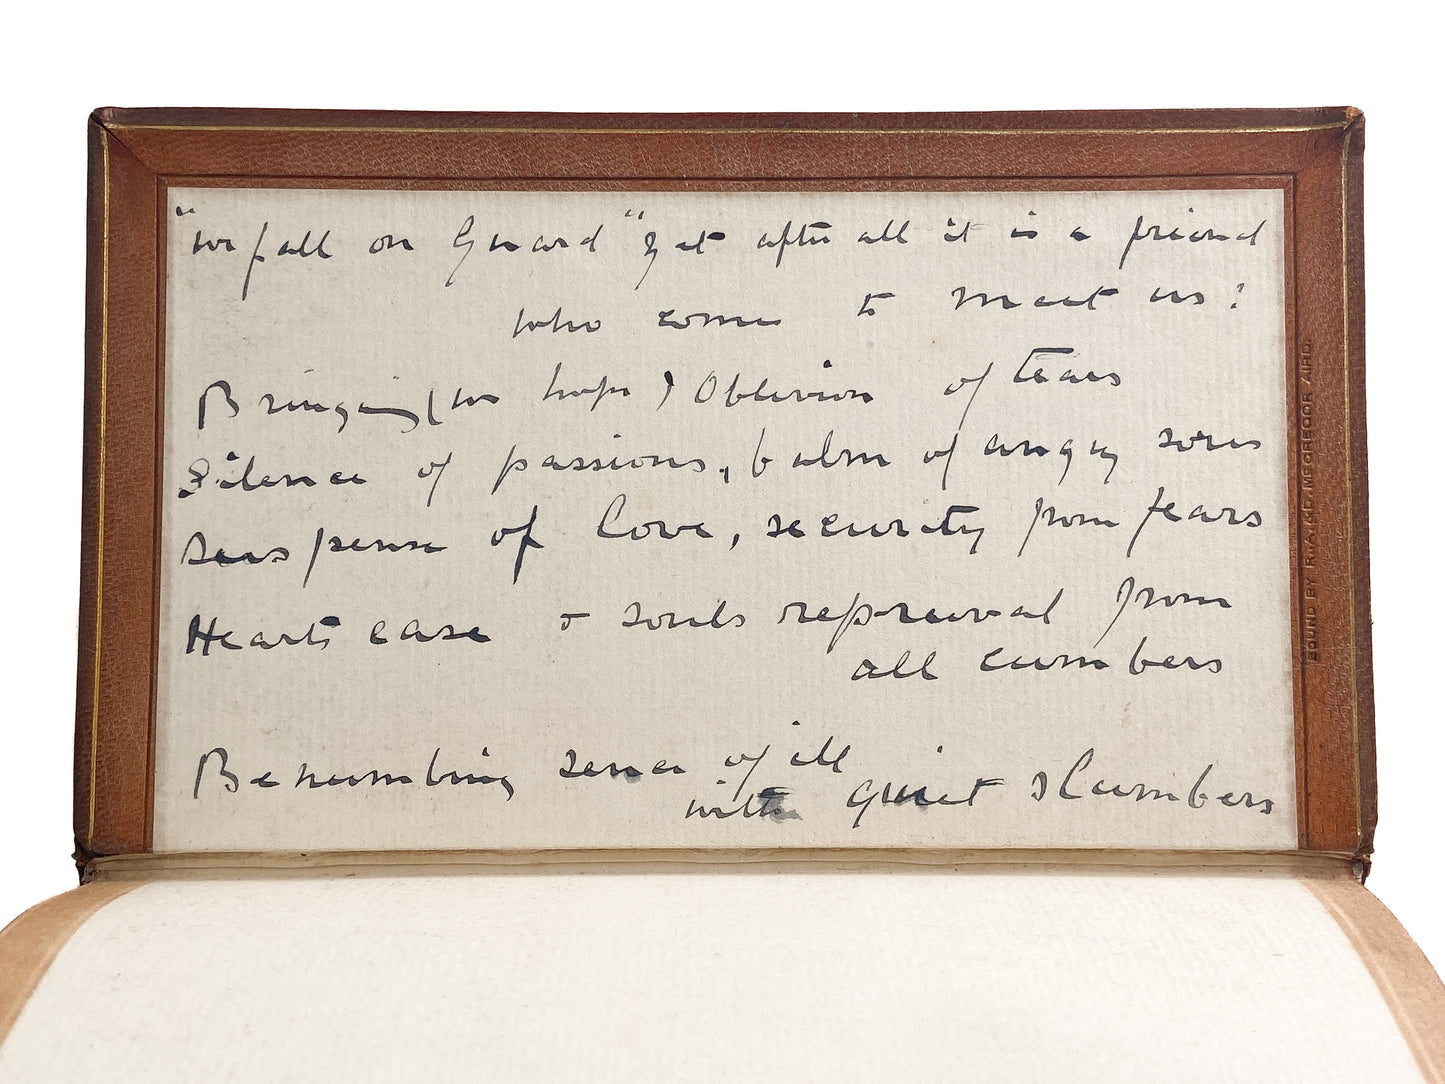 "we fall on Guard" yet after all it is a friend
who comes to meet us?
Bringing (we hope) Oblivion of tears
Silence of passions, balm of angry sores
Suspense of love, security from fears
Hearts ease & souls reprieval from
all cumbers
Benumbing sense of ill
with quiet slumbers
BOUND BY R.W. & A.D. MCGREGOR AIRD.